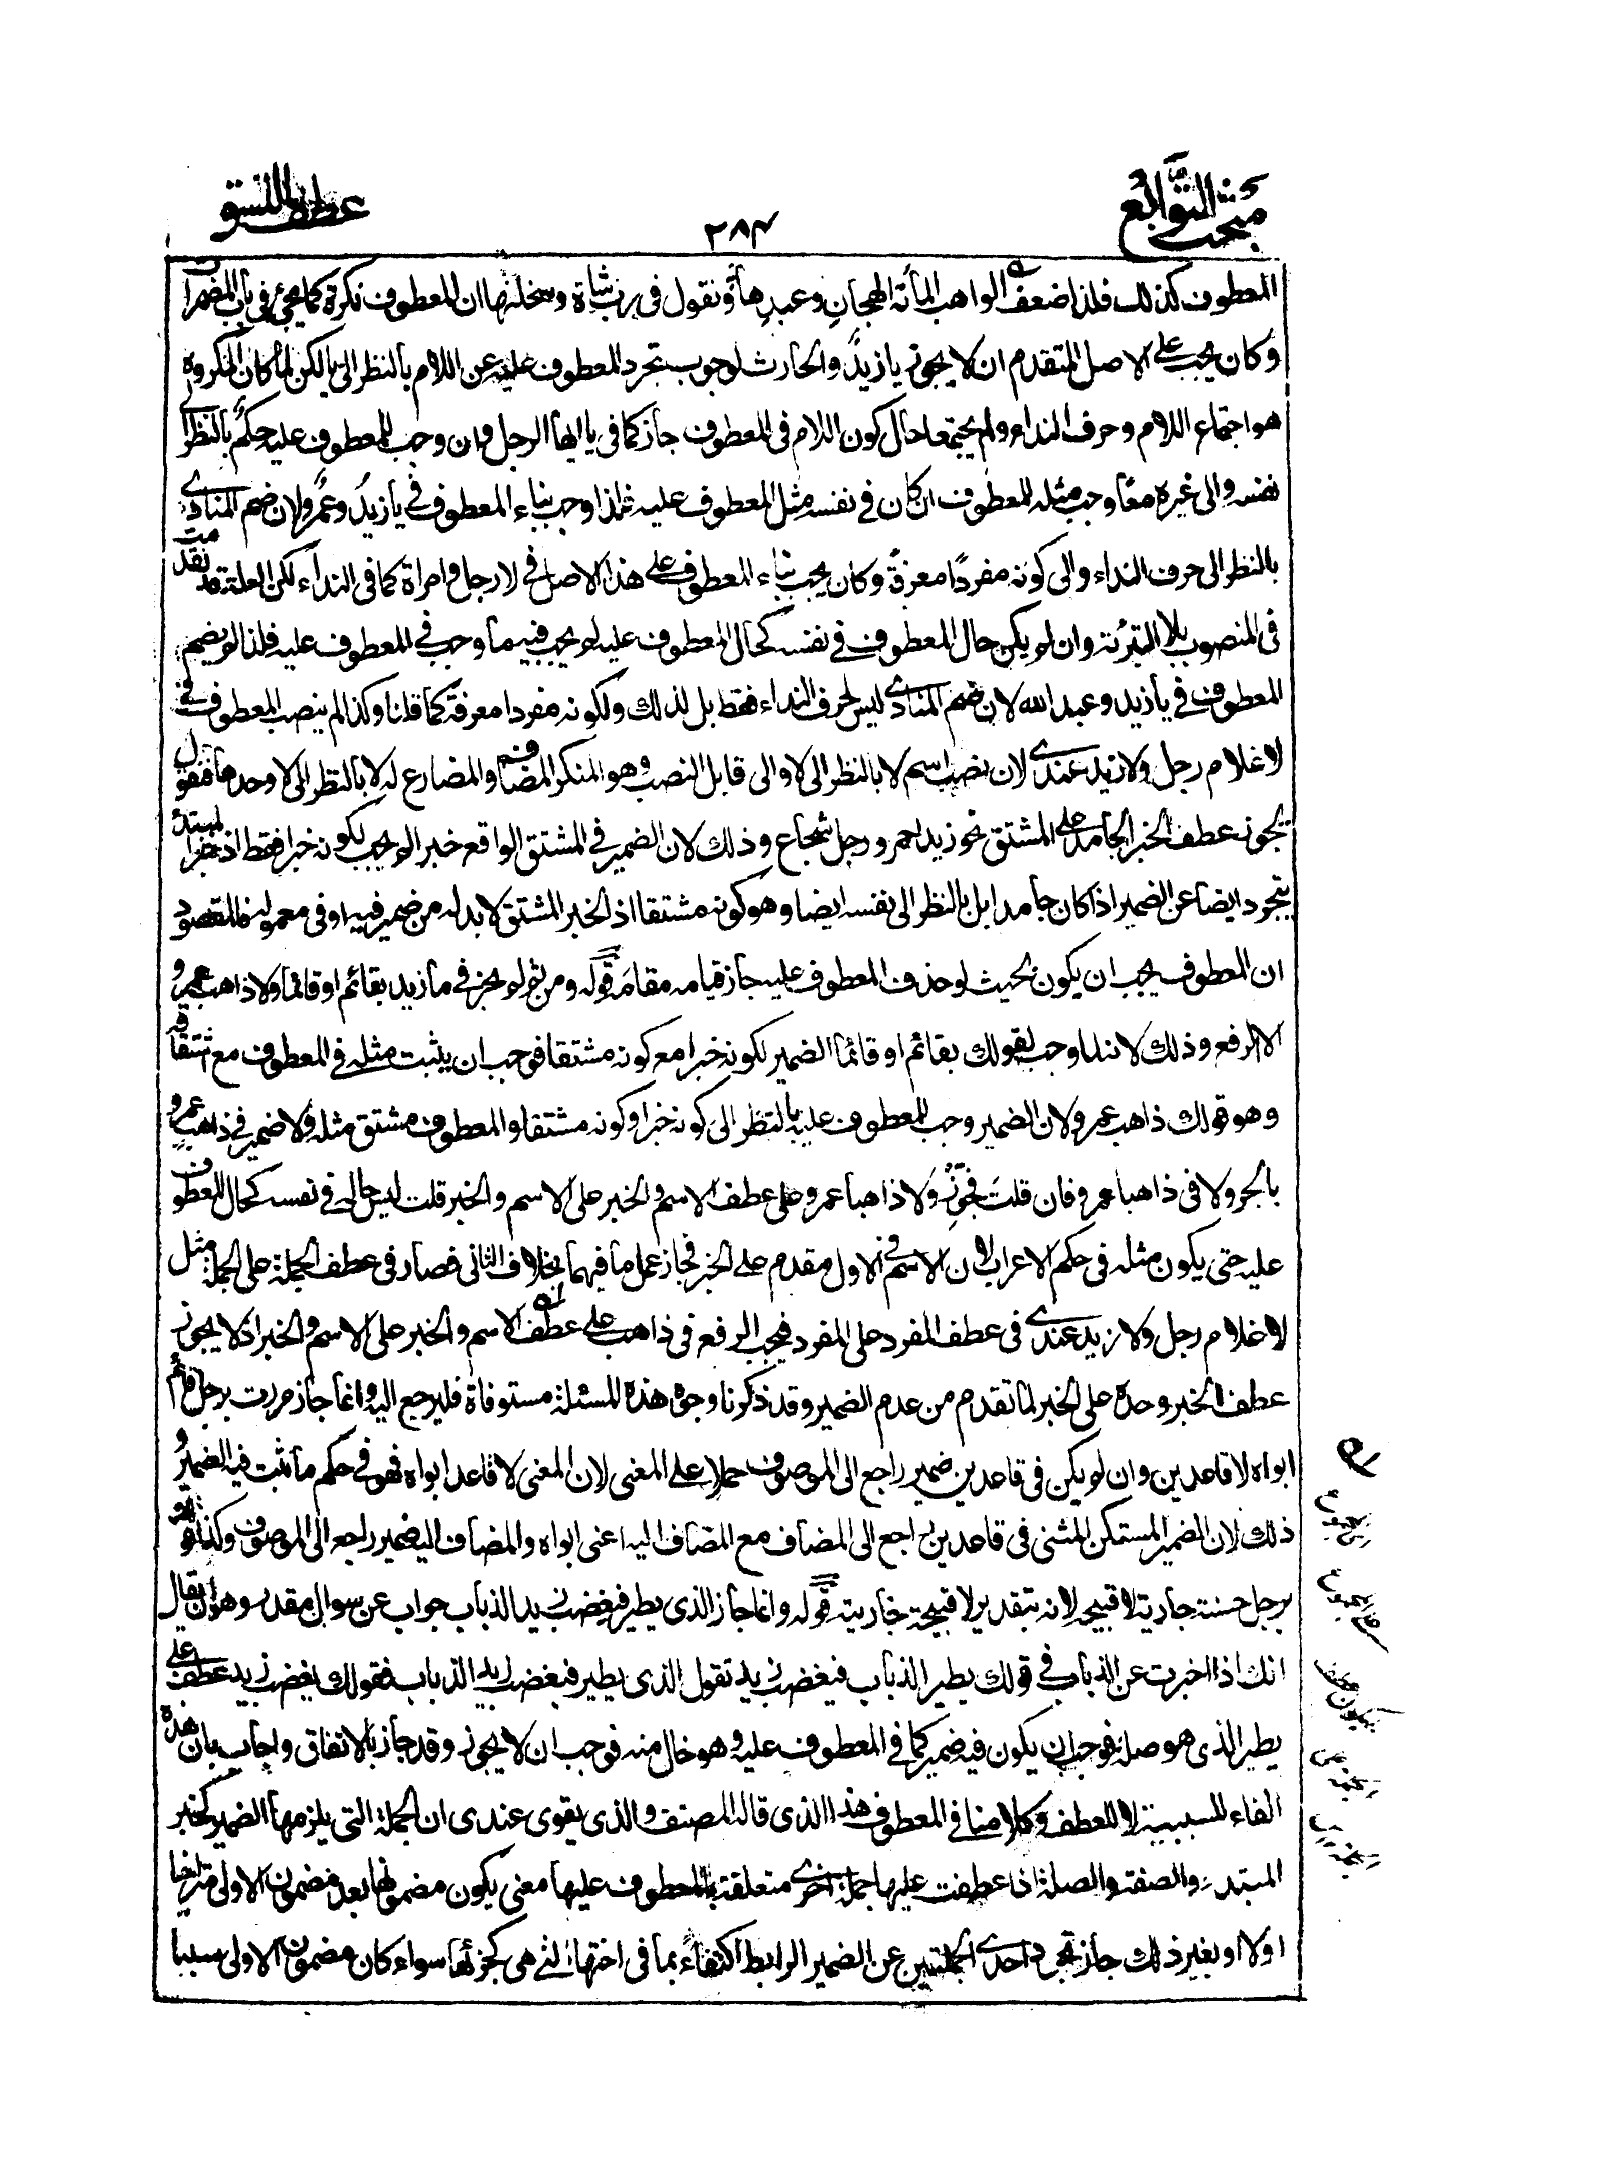 مبحث التوابع
٢٨٤
عطف النسق
المعطوف كذلك فلذا ضعف الواهب المأته الهجان وعبدها ونقول فى رب شاة وسخلتها ان المعطوف نكرة كما يجئ فى باب المضمرات
وكان يجب على الاصل المتقدم ان لا يجوز يا زيد والحارث لوجوب تجرد المعطوف عليه عن اللام بالنظر الى يا لكن لما كان المكروه
هو اجتماع اللام وحرف النداء ولم يجتمعا حال كون اللام فى المعطوف جاز كما فى يا ايها الرجل وان وجب للمعطوف عليه حكم بالنظر الى
نفسه والى غيره معا وجب مثله للمعطوف ان كان فى نفسه مثل المعطوف عليه فلذا وجب بناء المعطوف فى يا زيد وعمرو لان ضم المنادى
بالنظر الى حرف النداء والى كونه مفردا معرفة وكان يجب بناء المعطوف على هذا الاصل فى لا رجل وامراة كما فى النداء لكن العلة قد تقدمت
فى المنصوب بلا التبرئة وان لم يكن حال المعطوف فى نفسه كحال المعطوف عليه لم يجب فيه ما وجب فى المعطوف عليه فلذا لم يضم
المعطوف فى يا زيد وعبد الله لان ضم المنادى ليس لحرف النداء فقط بل لذلك ولكونه مفردا معرفة كما قلنا وكذا لم ينصب المعطوف فى
لا غلام رجل ولا زيد عندى لان نصب اسم لا بالنظر الى لا والى قابل النصب وهو المنكر المضاف والمضارع له لا بالنظر الى لا وحدها فنقول
يجوز عطف الخبر الجامد على المشتق نحو زيد احمر ورجل شجاع وذلك لان الضمير فى المشتق الواقع خبرا لم يجب لكونه خبرا فقط اذ خبر المبتدأ
يتجرد ايضا عن الضمير اذا كان جامدا بل بالنظر الى نفسه ايضا وهو كونه مشتقا اذ الخبر المشتق لا بد له من ضمير فيه او فى معموله فالمقصود
ان المعطوف يجب ان يكون بحيث لو حذف المعطوف عليه جاز قيامه مقامه قوله ومن ثم لم يجز فى ما زيد بقائم او قائما ولا ذاهب عمرو
الا الرفع وذلك لانه لما وجب لقولك بقائم او قائما الضمير لكونه خبرا مع كونه مشتقا فوجب ان يثبت مثله فى المعطوف مع اشتقاقه
وهو قولك ذاهب عمرو لان الضمير وجب للمعطوف عليه بالنظر الى كونه خبرا وكونه مشتقا والمعطوف مشتق مثله ولا ضمير فى ذاهب عمرو
بالجر ولا فى ذاهبا عمرو فان قلت فجوز ولا ذاهبا عمرو على عطف الاسم والخبر على الاسم والخبر قلت ليس حاله فى نفسه كحال المعطوف
عليه حتى يكون مثله فى حكم الاعراب لان الاسم فى الاول مقدم على الخبر فجاز عمل ما فيهما بخلاف الثانى فصار فى عطف الجملة على الجملة مثل
لا غلام رجل ولا زيد عندى فى عطف المفرد على المفرد فيجب الرفع فى ذاهب على عطف الاسم والخبر على الاسم والخبر اذ لا يجوز
عطف الخبر وحده على الخبر لما تقدم من عدم الضمير وقد ذكرنا وجوه هذه المسئلة مستوفاة فليرجع اليه وانما جاز مررت برجل قائم
ابواه لا قاعدين وان لم يكن فى قاعدين ضمير راجع الى الموصوف حملا على المعنى لان المعنى لا قاعد ابواه فهو فى حكم ما ثبت فيه الضمير و
ذلك لان الضمير المستكن المثنى فى قاعدين راجع الى المضاف مع المضاف اليه اعنى ابواه والمضاف اليه ضمير راجع الى الموصوف وكذا قولهم
برجل حسنة جاريته لا قبيحة لانه بتقدير لا قبيحة جاريته قوله وانما جاز الذى يطير فيغضب زيد الذباب جواب عن سوال مقدر وهو ان يقال
انك اذا اخبرت عن الذباب فى قولك يطير الذباب فيغضب زيد تقول الذى يطير فيغضب زيد الذباب فقولك يغضب زيد عطف على
يطير الذى هو صلة فوجب ان يكون فيه ضمير كما فى المعطوف عليه وهو خال منه فوجب ان لا يجوز وقد جاز بالاتفاق واجاب بان هذه
الفاء للسببية لا للعطف وكلامنا فى المعطوف هذا الذى قاله المصنف والذى يقوى عندى ان الجملة التى يلزمها الضمير كخبر
المبتدء والصفة والصلة اذا عطفت عليها جملة اخرى متعلقة بالمعطوف عليها معنى يكون مضمونها بعد مضمون الاولى متراخيا
اولا او بغير ذلك جاز تجرد احدى الجملتين عن الضمير الرابط اكتفاء بما فى اختها التى هى كجزئها سواء كان مضمون الاولى سببا